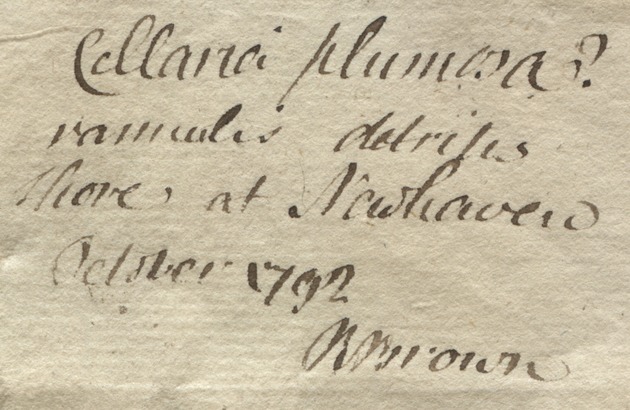 Cellaria plumosa?
ramulis detritis
Shore at Newhaven
October 1792
R Brown